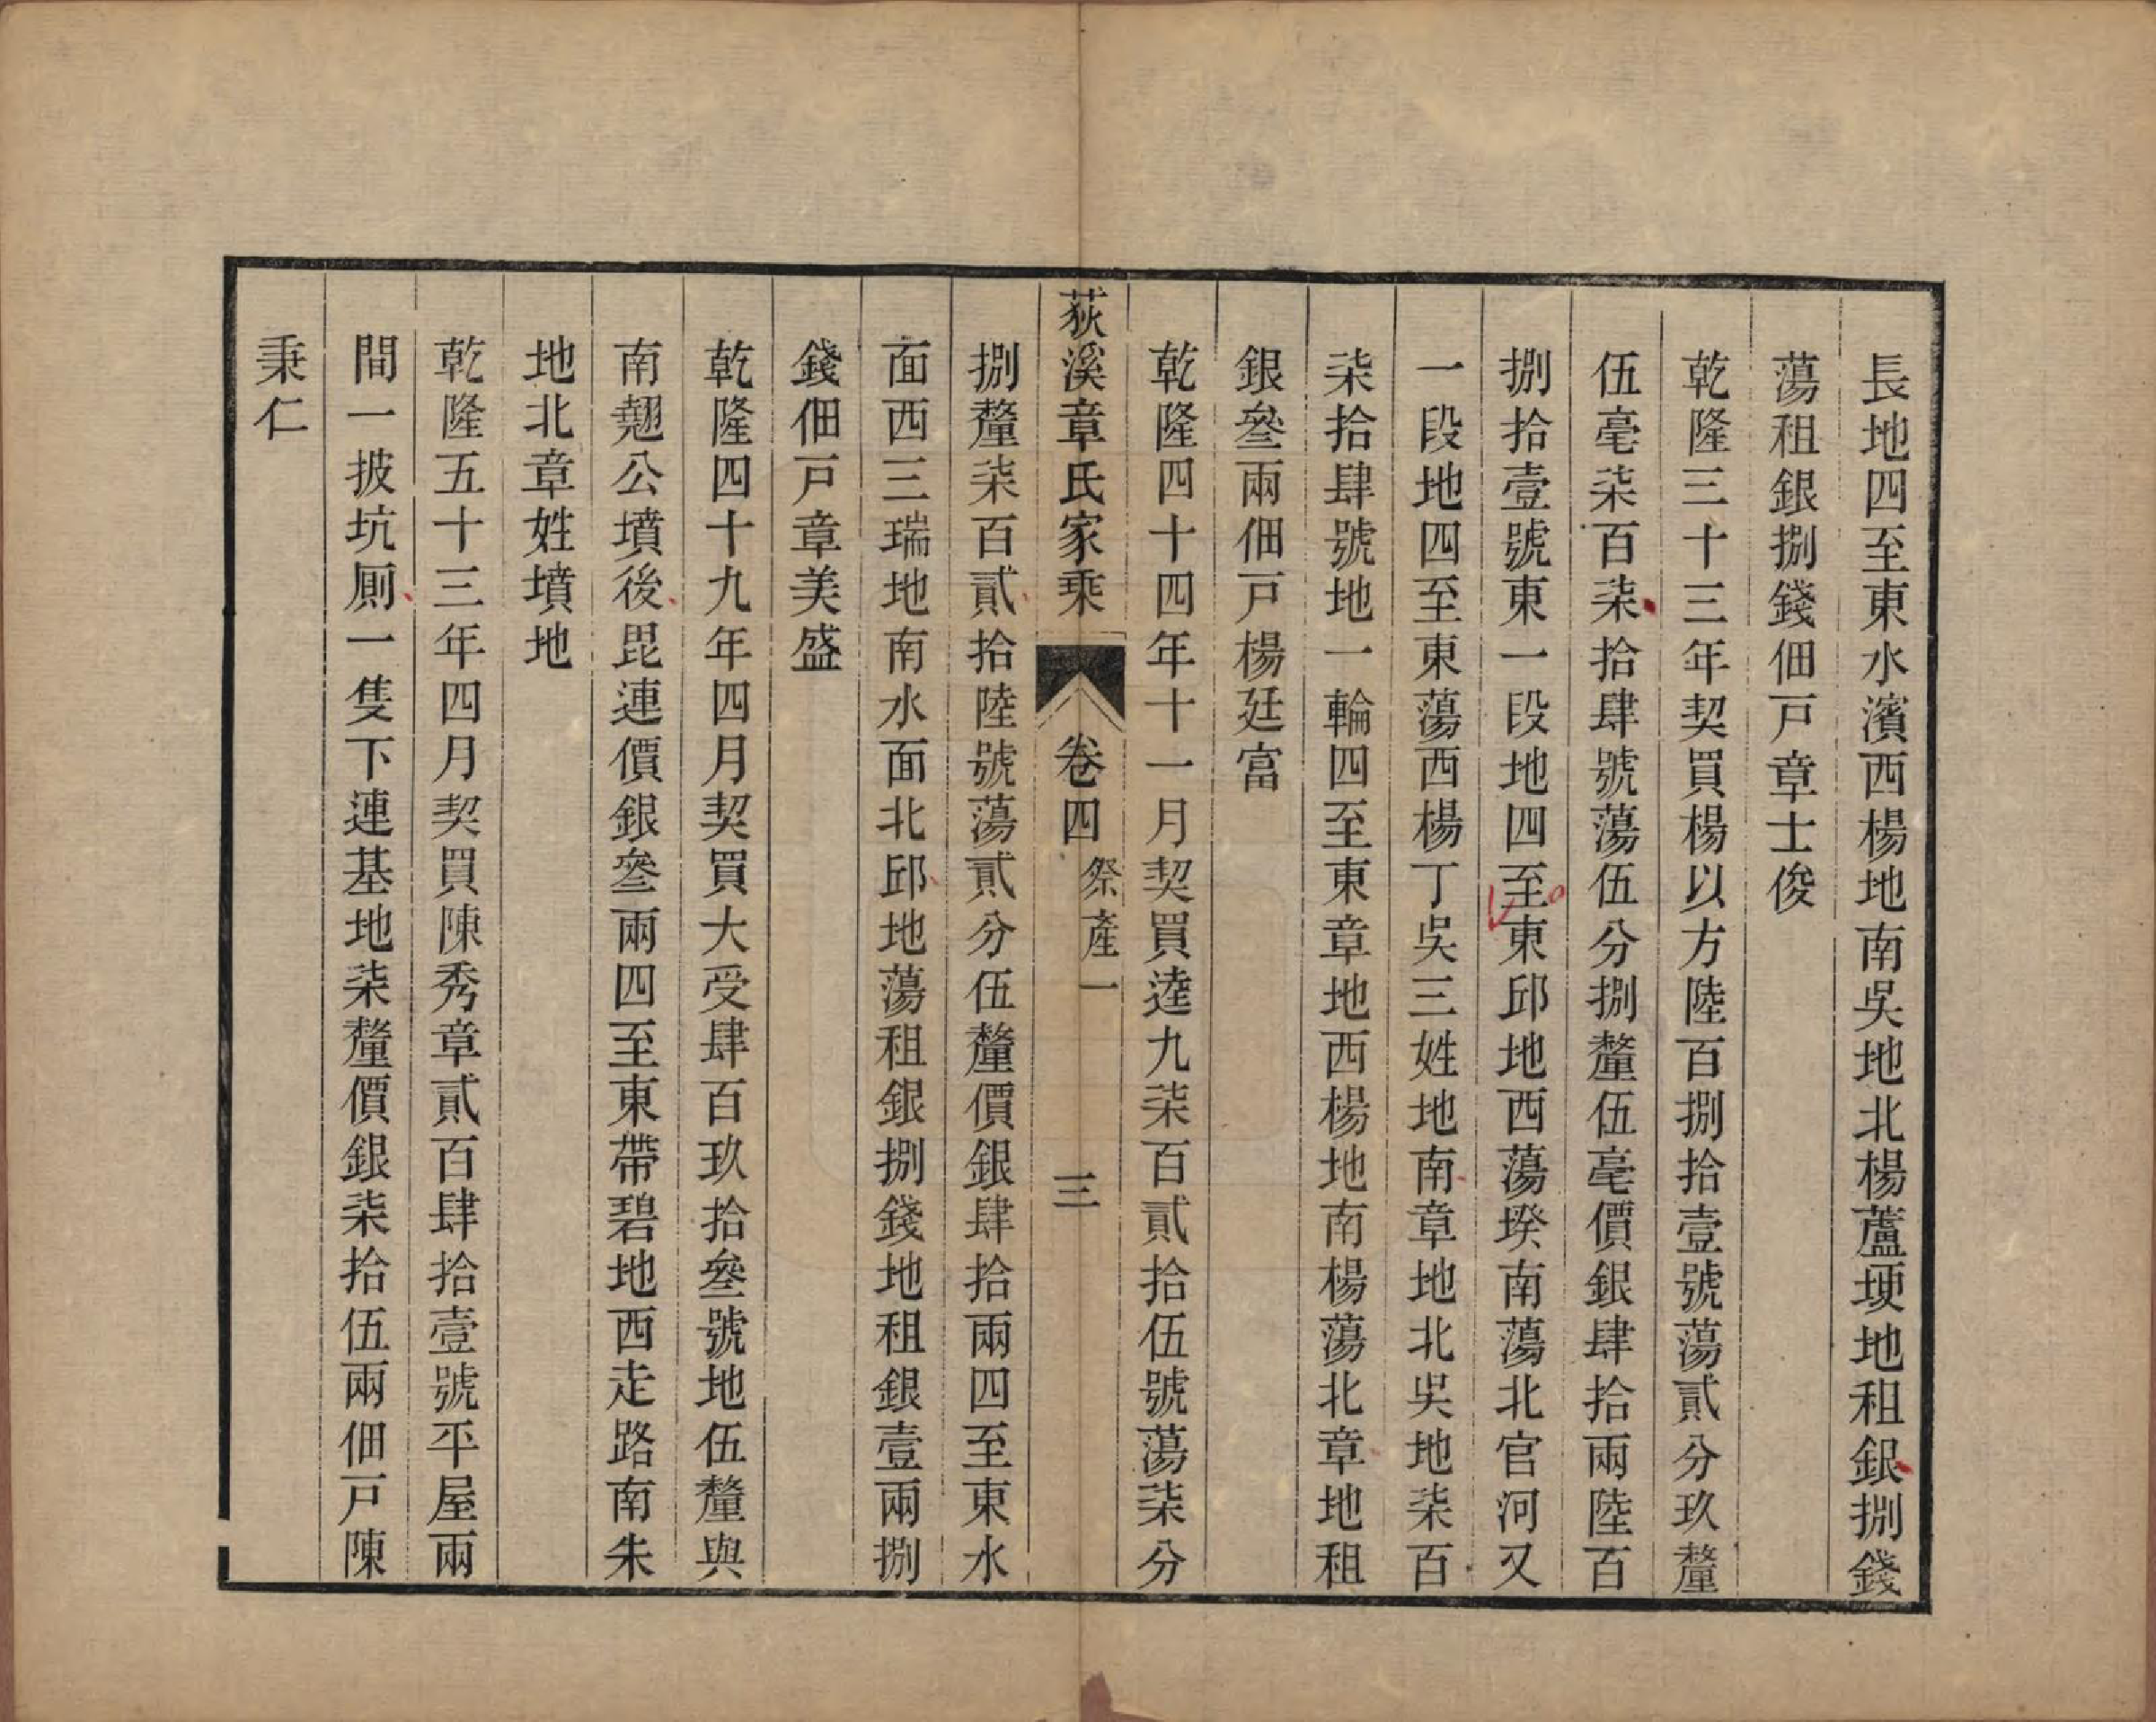 長地四至東水濱西楊地南吳地北楊蘆埂地租銀捌錢
蕩租銀捌錢佃戸章士俊
乾隆三十三年契買楊以方陸百捌拾壹號蕩貳分玖釐
伍毫柒百柒拾肆號蕩伍分捌釐伍毫價銀肆拾兩陸百
捌拾壹號東一段地四至東邱地西蕩堗南蕩北官河又
一段地四至東蕩西楊丁吳三姓地南章地北吳地柒百
柒拾肆號地一輪四至東章地西楊地南楊蕩北章地租
銀叄兩佃戸楊廷富
乾隆四十四年十一月契買逵九柒百貳拾伍號蕩柒分
荻溪章氏家乘 卷四 祭產一 三
捌釐柒百貳拾陸號蕩貳分伍釐價銀肆拾兩四至東水
面西三瑞地南水面北邱地蕩租銀捌錢地租銀壹兩捌
錢佃戸章美盛
乾隆四十九年四月契買大受肆百玖拾叄號地伍釐與
南翹公墳後毘連價銀叄兩四至東帶碧地西走路南朱
地北章姓墳地
乾隆五十三年四月契買陳秀章貳百肆拾壹號平屋兩
間一披坑厠一隻下連基地柒釐價銀柒拾伍兩佃戸陳
秉仁